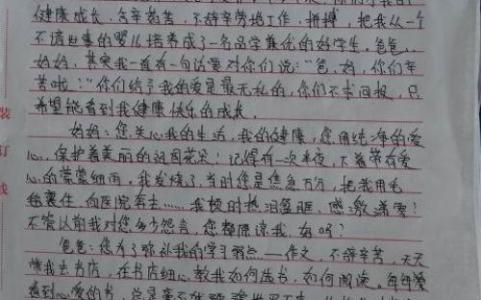 健康成长，含辛茹苦，不辞辛劳地工作，拼搏，把我从一个
不懂世事的婴儿培养成了一名品学兼优的好学生。爸爸、
妈妈，其实我一直有一句话要对你们说：“爸，妈，你们辛
苦啦！”你们给予我的爱是最无私的，你们不求回报，只
希望能看到我健康快乐的成长。
妈妈：您关心我的生活，我的健康，您用纯净的爱
心，保护着美丽的祖国花朵！记得有一次半夜，下着带有爱
心的蒙蒙细雨，我发烧了，当时您是焦急万分，把我用毛
毯裹住向医院奔去……我顿时热泪盈眶，感激涕零！
不管以前我对您多少怨言，您都原谅我，好吗？
爸爸：您为了弥补我的学习弱点——作文，不辞辛苦，天天
带我去书店，在书店细心教我如何选书，如何阅读。每每爱
看到心爱的书，总是
装
订
线